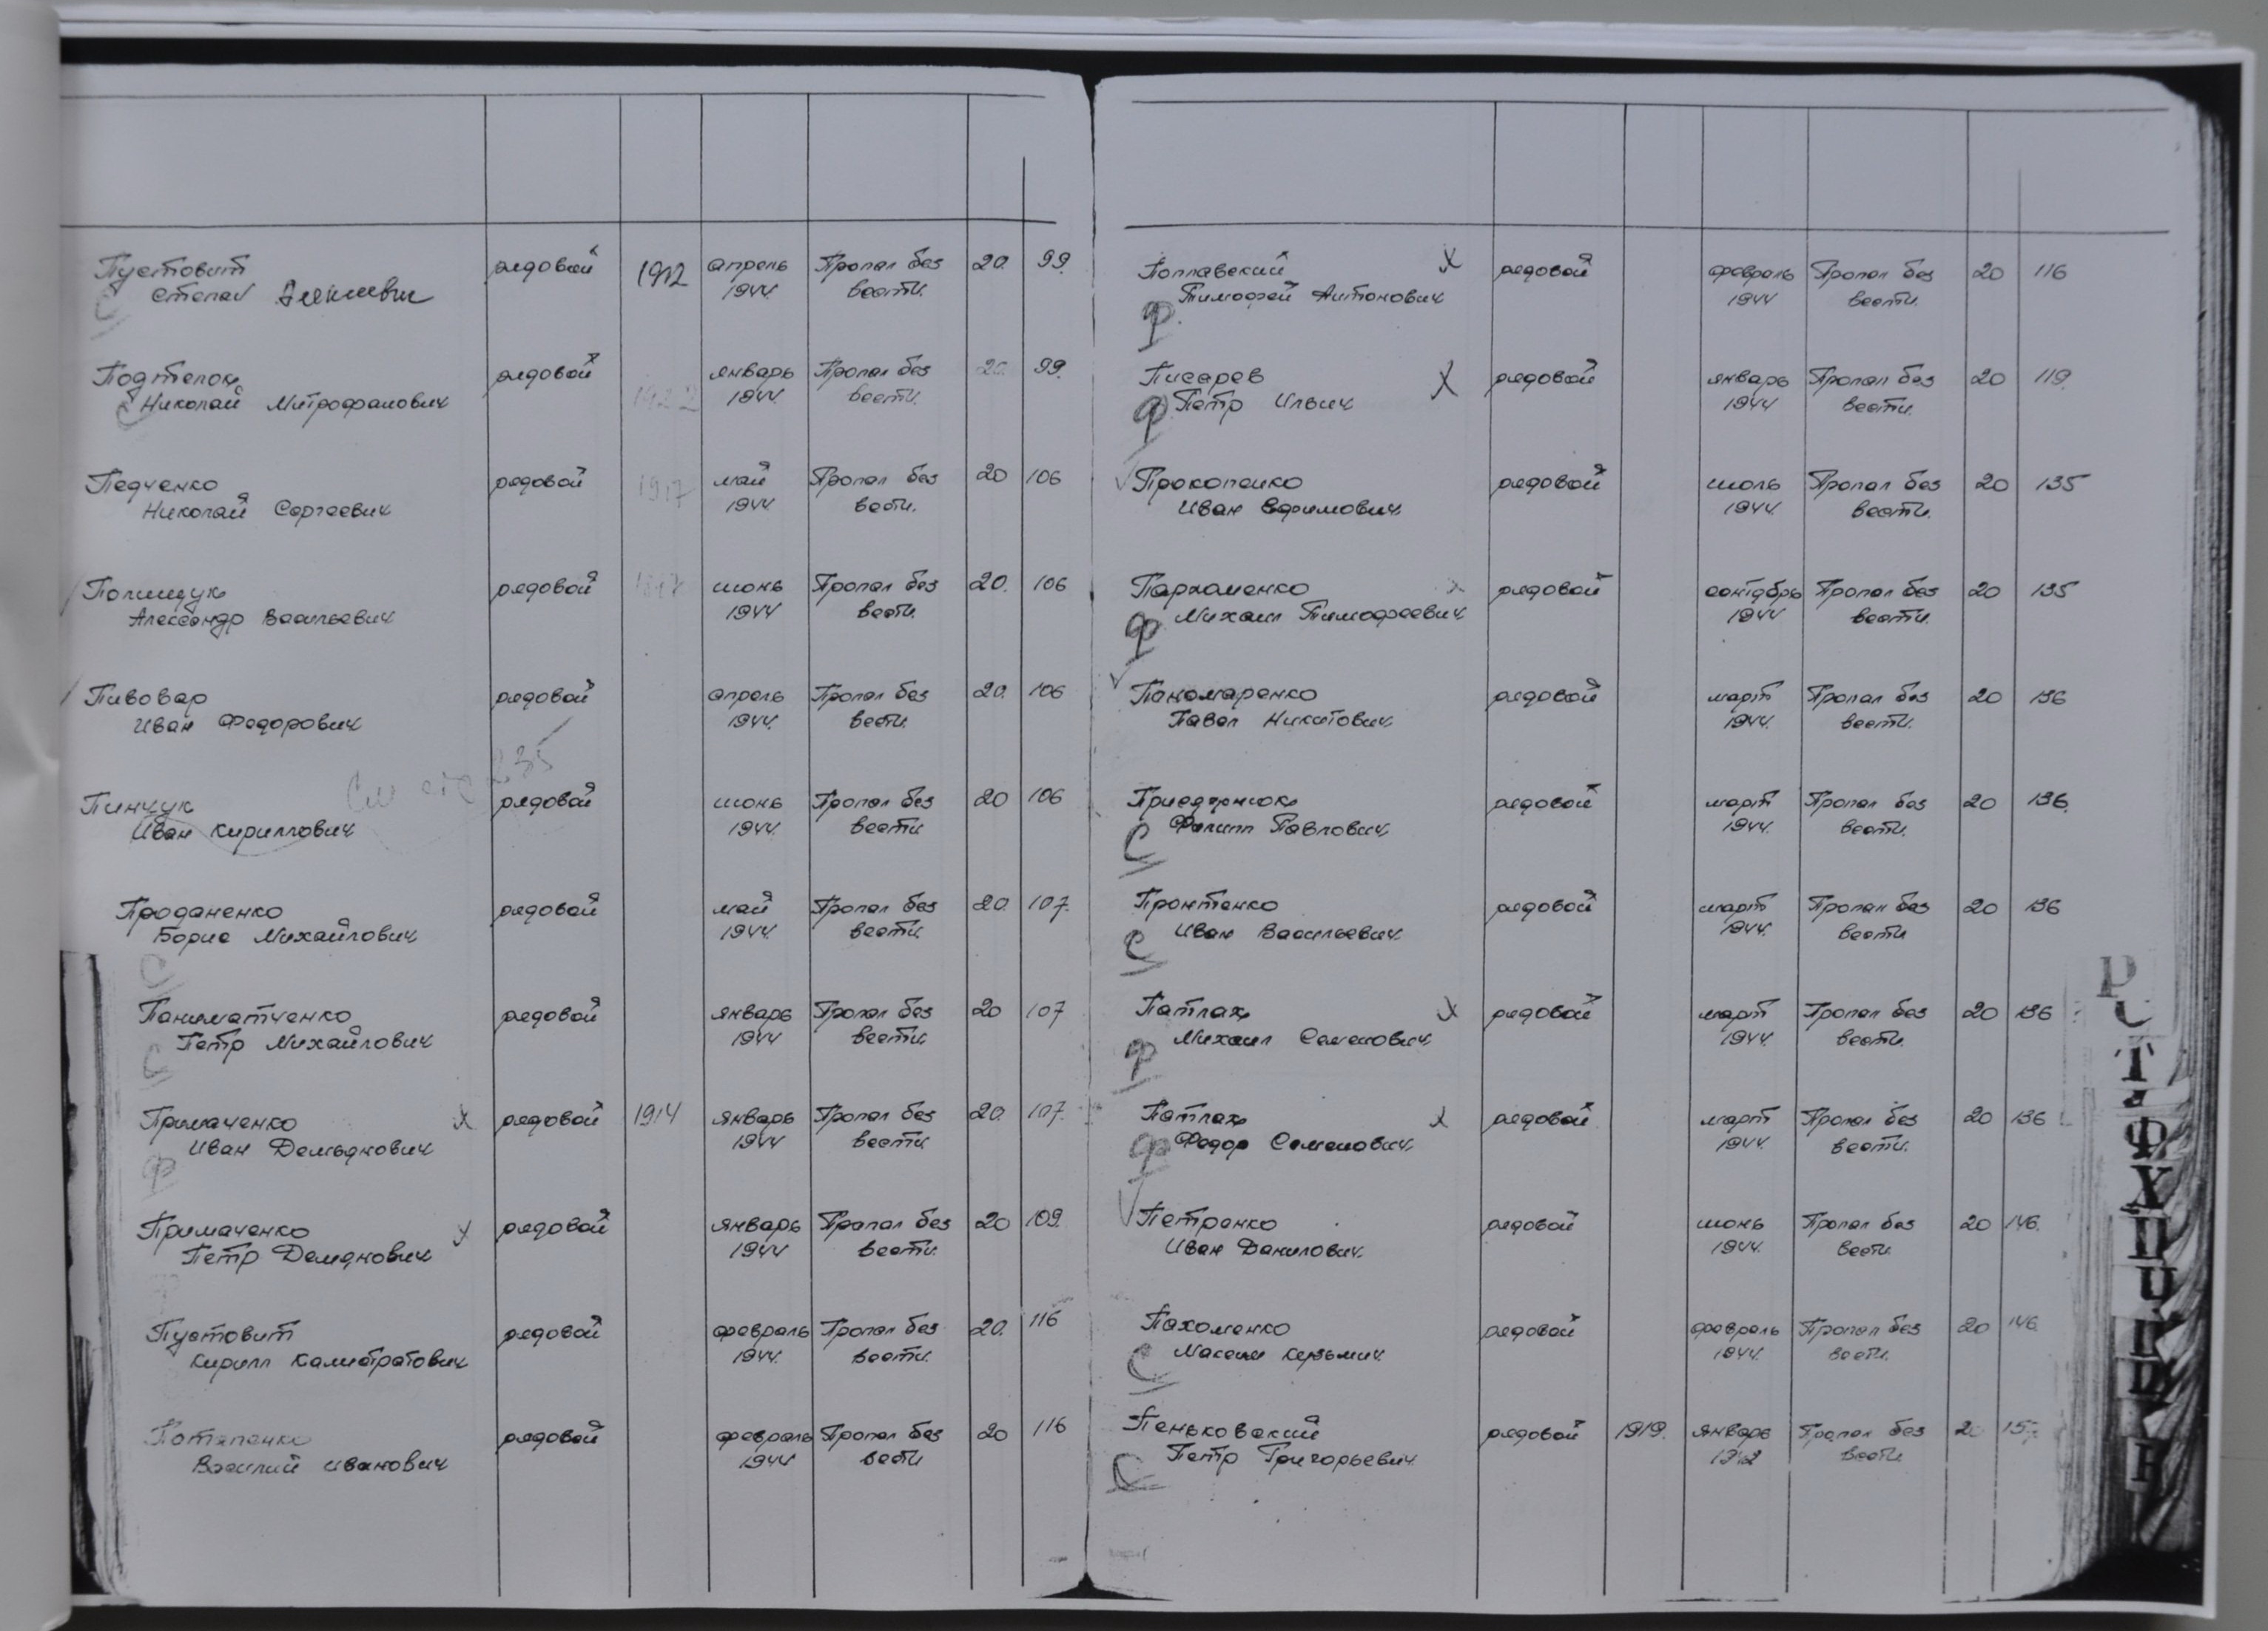 Пустовит рядовой 1912 апрель Пропал без 20. 99.
Степан Алексеевич 1944 вести.
С
Подтелок рядовой 1922 январь Пропал без 20. 99.
Николай Митрофанович 1944 вести.
С
Педченко рядовой 1917 май Пропал без 20 106
Николай Сергеевич 1944 вести.
Полищук рядовой июнь Пропал без 20. 106
Александр Васильевич 1944 вести.
Пивовар рядовой апрель Пропал без 20. 106
Иван Федорович 1944. вести.
См 235
Пинчук рядовой июнь Пропал без 20 106
Иван Кириллович 1944. вести
Проданенко рядовой май Пропал без 20. 107.
Борис Михайлович 1944 вести.
С
Паниматченко рядовой январь Пропал без 20 107
Петр Михайлович 1944 вести
С
Примаченко х рядовой 1914 январь Пропал без 20. 107.
Иван Демьянович 1944 вести
Ф
Примаченко х рядовой январь Пропал без 20 109.
Петр Демянович 1944 вести.
Пустовит рядовой февраль Пропал без 20. 116
Кирилл Калистратович 1944. вести.
Потапенко рядовой февраль Пропал без 20 116
Василий Иванович 1944 вести
Поплавский х рядовой февраль Пропал без 20 116
Тимофей Антонович 1944 вести.
Ф.
Писарев х рядовой январь Пропал без 20 119.
Ф Петр Ильич 1944 вести.
Прокопенко рядовой июль Пропал без 20 135
Иван Ефимович 1944. вести.
Пархоменко х рядовой сентябрь Пропал без 20 135
Ф Михаил Тимофеевич 1944 вести.
Пономаренко рядовой март Пропал без 20 136
Павел Никитович 1944. вести.
рядовой март Пропал без 20 136.
Филипп Павлович 1944. вести.
С
Пронтенко рядовой март Пропал без 20 136
Иван Васильевич 1944. вести
С
Патлах х рядовой март Пропал без 20 136
Ф Михаил Семенович 1944. вести.
Патлах х рядовой март Пропал без 20 136
Ф Федор Семенович 1944. вести.
Петренко рядовой июнь Пропал без 20 146.
Иван Данилович 1944. вести.
Пахоменко рядовой февраль Пропал без 20 146.
С Максим Кузьмич 1944. вести.
Пеньковский рядовой 1919. январь Пропал без
С Петр Григорьевич вести
Р
С
Т
Ф
Х
Ц